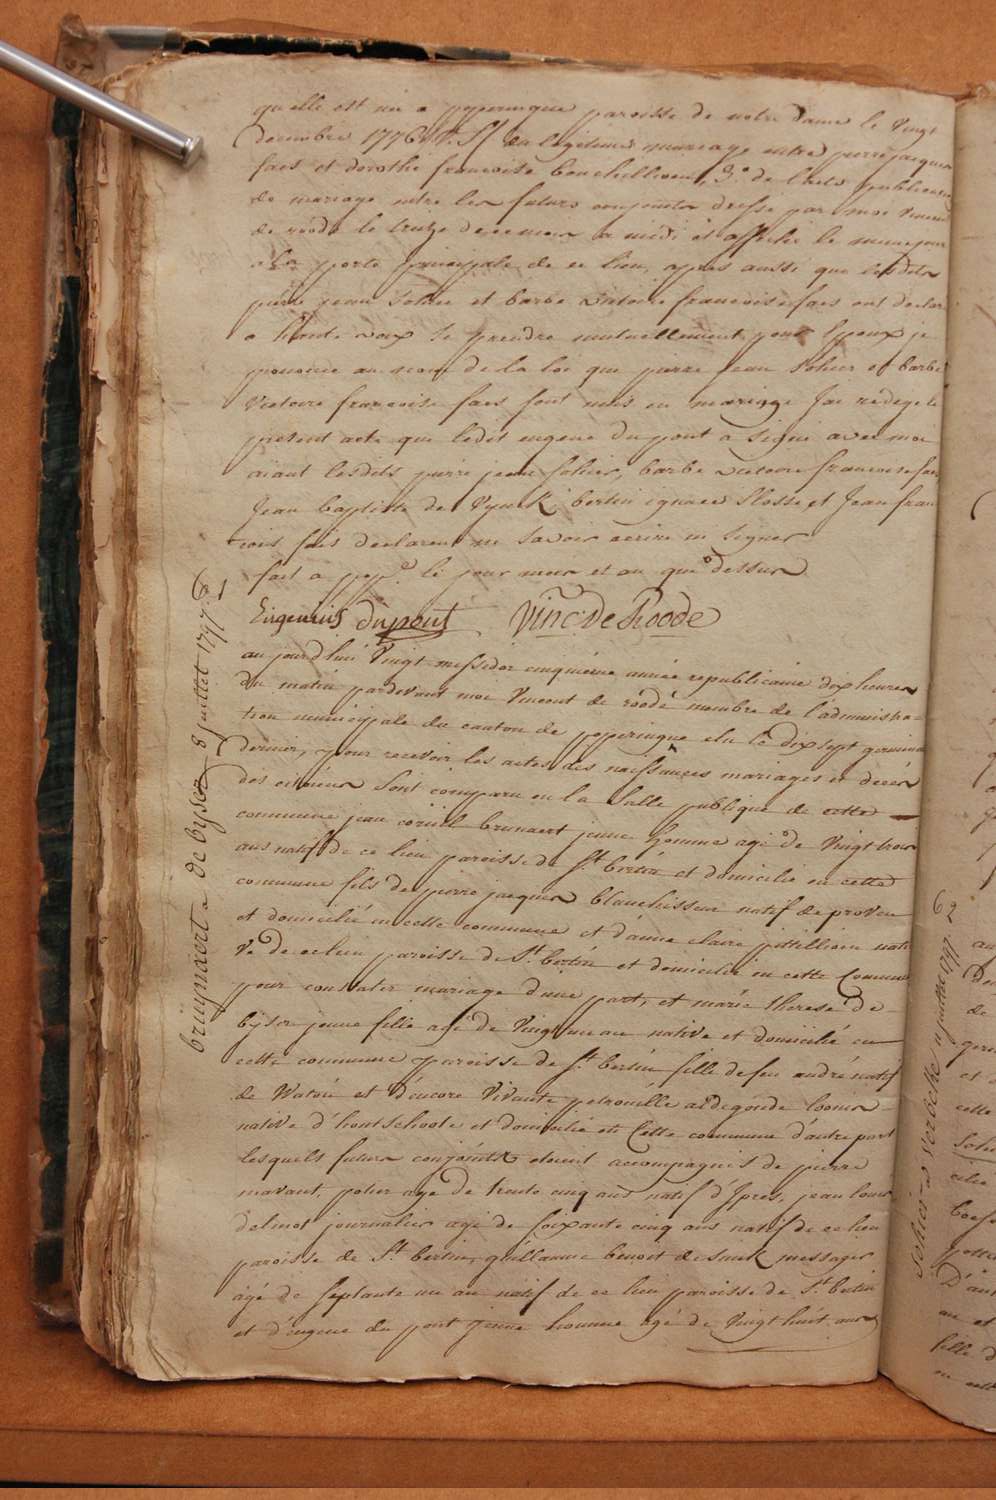 qu'elle est née a poperingue paroisse de notre dame le vingt
decembre 1776 du legitime mariage entre pierre jacques
faes et dorothé francoise 3.° de l'acte publication
de mariage entre les futurs conjoints dressé par moi vincent
de roode le treize a midi et affiché le meme jour
a la porte principale de ce lieu, apres aussi que lesdits
pierre jean sohier et barbe victoire francoise faes ont declaré
a haute voix se prendre mutuellement pour Epoux je
prononce au nom de la loi que pierre jean sohier et barbe
Victoire francoise faes sont unis en mariage J'ai redegé le
present acte que ledit eugene dupont a signé avec moi
aiant lesdits pierre jean sohier, barbe victoire francoise faes
Jean baptiste de Vynck bertin ignace Hosse et Jean fran
cois faes declarent ne savoir ecrire ni signer
fait a pop.e le jour mois et an que dessus
Eugenius dupont Vinc: De Roode
bruynaert a de byser 8 juillet 1797. 61
au jourd'hui Vingt messidor cinquieme année republicaine dix heures
du matin pardevant moi Vincent de roode membre de l'administra=
tion municipale du canton de poperingue elu le dix sept germinal
dernier, pour recevoir les actes des naissances mariages et decés
des citoiens sont comparu en la salle publique de cette
commune jean corneil brunaert jeune homme agé de Vingt trois
ans natif de ce lieu paroisse de St bertin et domicilié en cette
commune fils de pierre jacques blanchisseur natif de proven
et domicilié en cette commune et d'anne claire pittillioen nati
ve de ce lieu paroisse de St bertin et domicilié en cette Commune
pour constater mariage d'une part, et marie therese de
byser jeune fille agé de Vingt un ans native et domicilié en
cette commune paroisse de St bertin fille de feu andré natif
de Watou et d'encore Vivante petronille aldegonde Coomer
native d'hontschoote et domicilié en Cette commune d'autre part
lesquels futurs conjoints etoient accompagnés de pierre
mavaut, potier agé de trente cinq ans natif d'Ypres, jean louis
delmot journalier agé de soixante cinq ans natif de ce lieu
paroisse de St bertin, guillaume benoit de smek messager
agé de septante un an natif de ce lieu paroisse de St bertin
et d'eugene du pont jeune homme agé de Vingt huit ans
sohier a verbeke 11 juillet 1797. 62